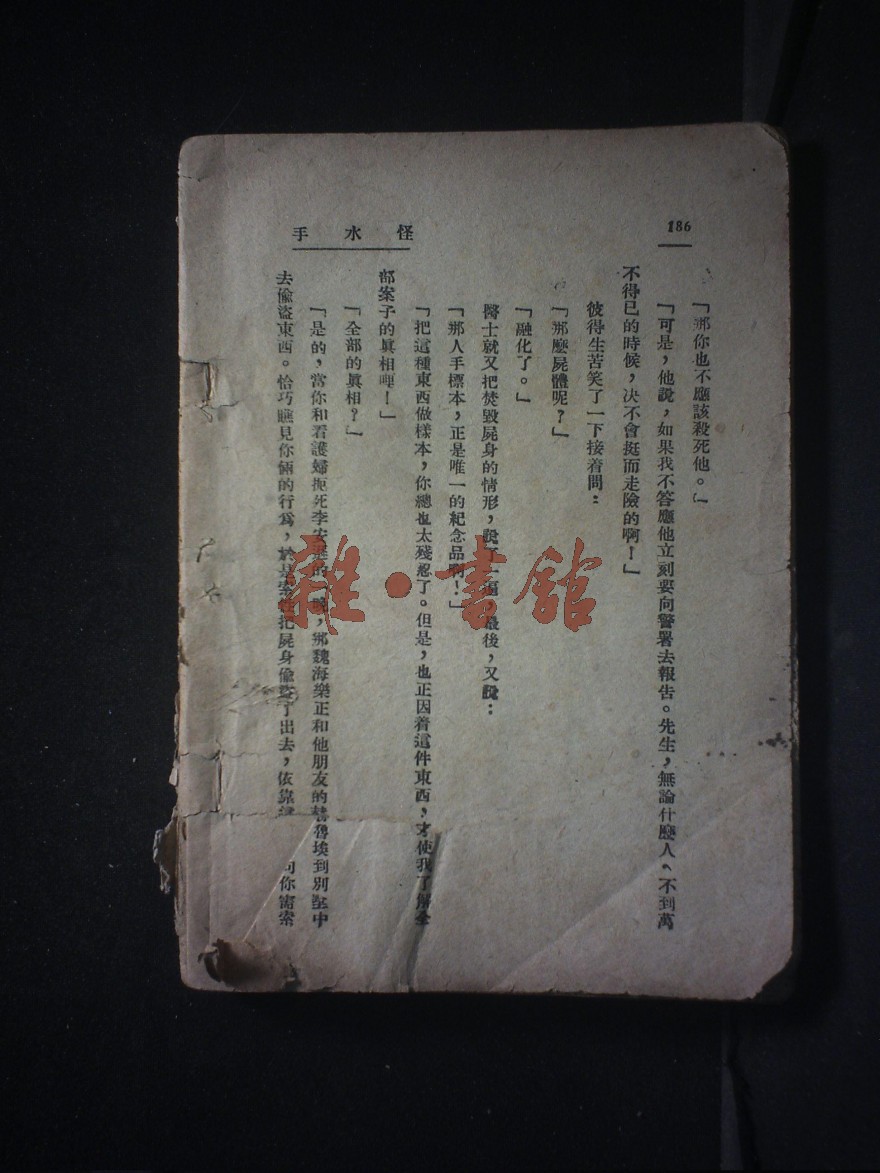 186
怪水手
「那你也不應該殺死他。」
「可是，他說，如果我不答應他立刻要向警署去報告。先生，無論什麼人、不到萬
不得已的時候，决不會挺而走險的啊！」
彼得生苦笑了一下接着問：
「那麼屍體呢？」
「融化了。」
醫士就又把焚毀屍身的情形，說了一遍，最後，又說：
「那人手標本，正是唯一的紀念品啊！」
「把這種東西做樣本，你總也太殘忍了。但是，也正因着這件東西，才使我了解全
部案子的眞相哩！」
「全部的眞相？」
「是的，當你和看護婦扼死李安遜的一晚，那魏海樂正和他朋友的魯埃到別墅中
去偷盜東西。恰巧瞧見你倆的行爲，於是索性把屍身偷盜了出去，依靠 向你需索
雜·書館